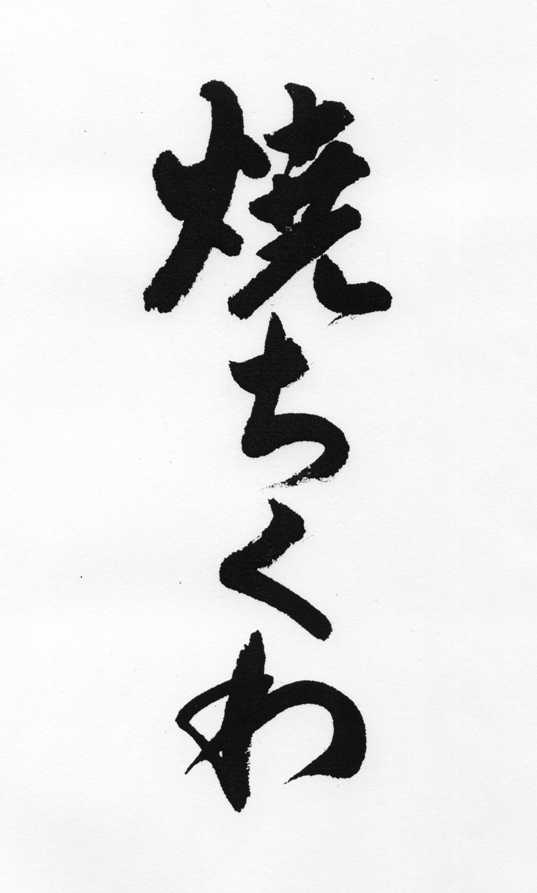 焼ちくわ